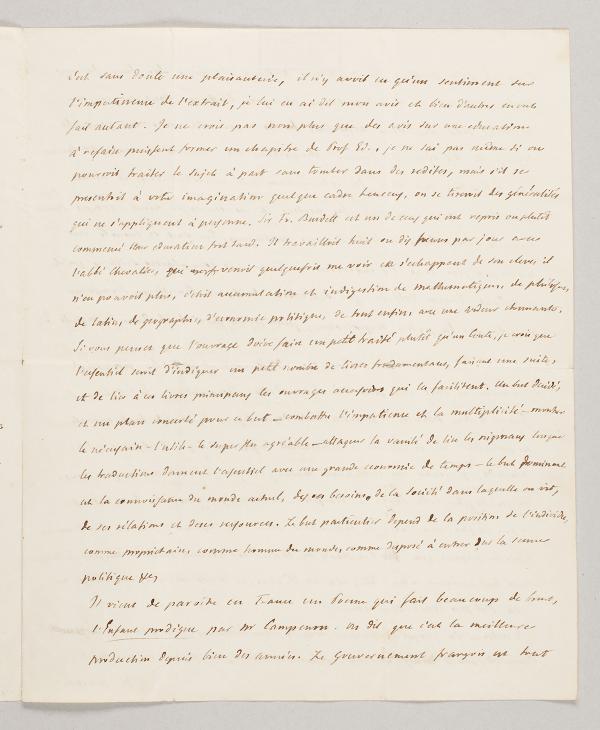 c'est sans doute une plaisanterie, il n'y avoit eu qu'un sentiment sur
l'impatience de l'extrait, je lui en ai dit mon avis et bien d'autres en ont
fait autant. Je ne crois pas non plus que des avis sur une education
à refaire puissent former un chapitre de Prof Ed., je ne sai pas même si on
pourroit traiter le sujet à part sans tomber dans des redites, mais s'il se
presentoit à votre imagination quelque cadre heureux, on se tireroit des généralités
qui ne s'appliquent à personne. Sir Fr. Burdett est un de ceux qui ont repris ou plutôt
commencé leur education fort tard. Il travailloit huit ou dix heures par jour avec
l'abbé Chevalier, qui venoit quelquefois me voir en s'echappant de son eleve, il
n'en pouvoit plus, c'étoit accumulation et indigestion de mathematiques, de physique,
de latin, de geographie, d'economie politique, de tout enfin, avec une ardeur etonnante.
Si vous pensez que l'ouvrage doive faire un petit traité plutôt qu'un conte, je crois que
l'essentiel seroit d'indiquer un petit nombre de livres fondamentaux, faisant une suite,
et de lier à ces livres principaux les ouvrages accessoires qui la facilitent. Un but décidé,
et un plan concerté pour ce but – combattre l'impatience et la multiplicité – montrer
le nécessaire – l'utile – le superflu agréable – attaquer la vanité de lire les originaux lorsque
les traductions donnent l'essentiel avec une grande economie de temps – le but dominant
est la connoissance du monde actuel, des besoins de la société dans laquelle on vit,
de ses rélations et de ses ressources. Le but particulier depend de la position de l'individu,
comme proprietaire, comme homme du monde, comme disposé à entrer dans la scene
politique &c,
Il vient de paroitre en France un Poeme qui fait beaucoup de bruit,
l'Enfant prodigue par Mr Campenon. On dit que c'est la meilleure
production depuis bien des années. Le Gouvernement françois est tout